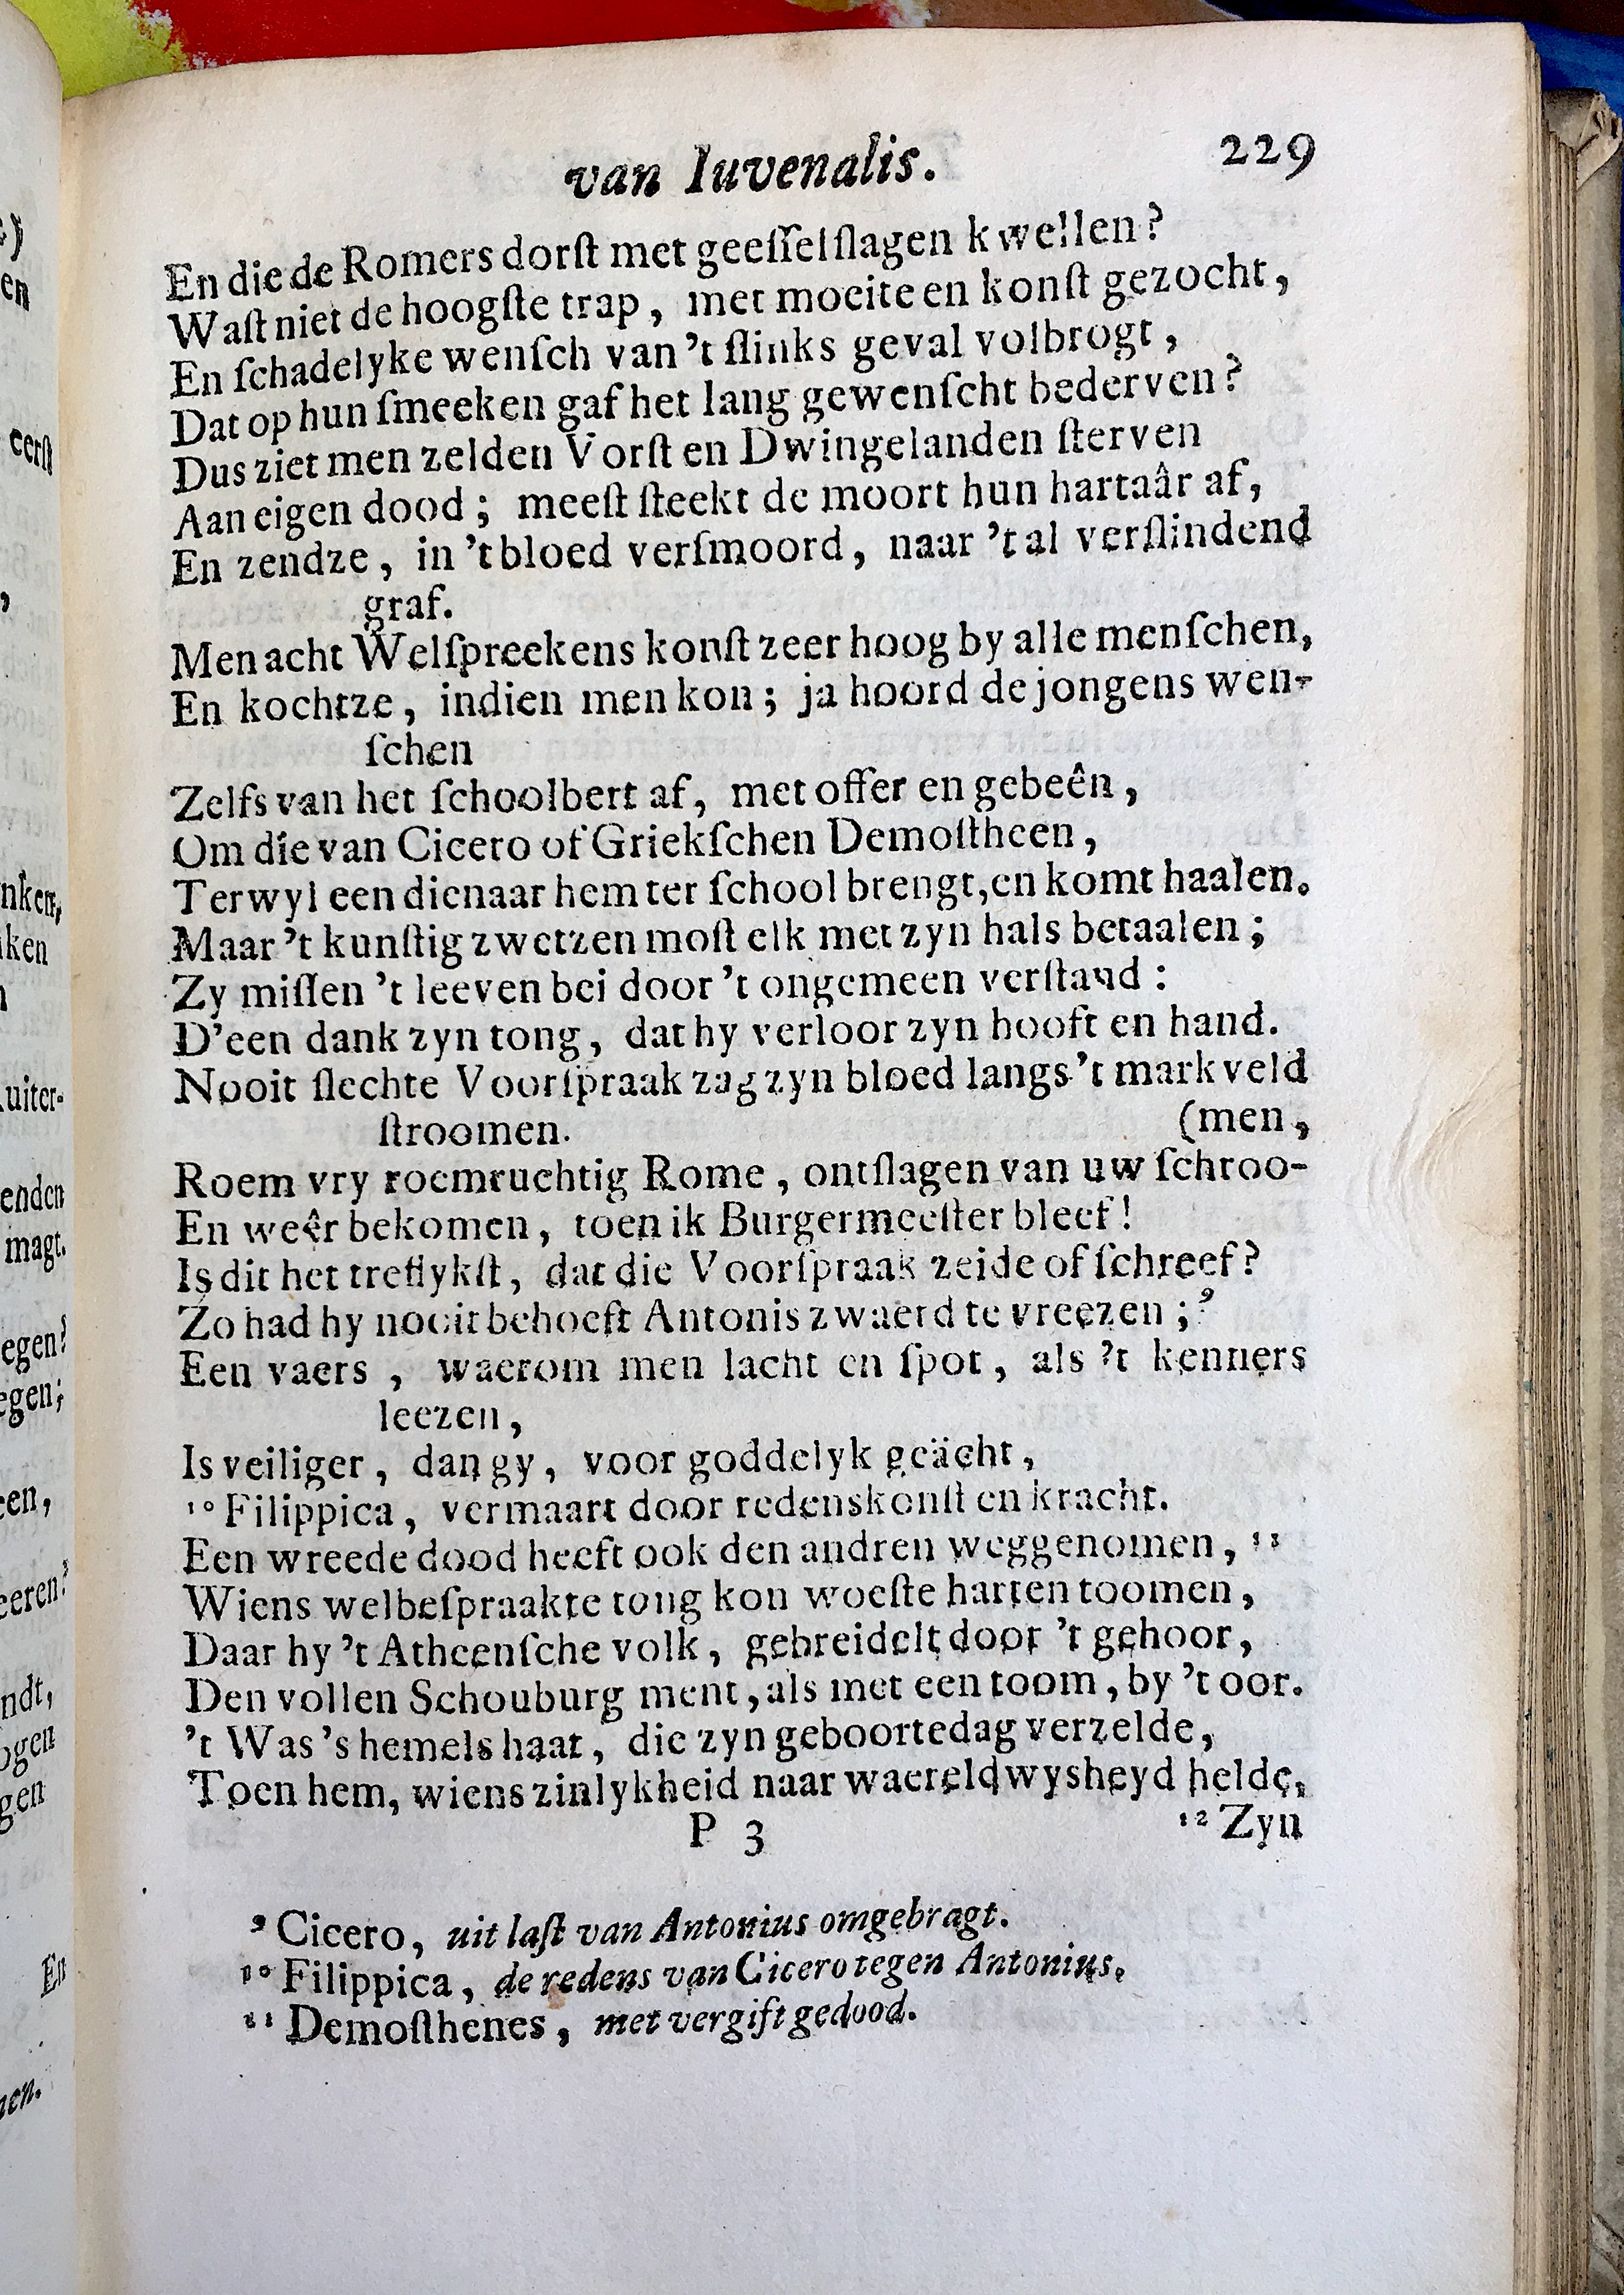 van Iuvenalis. 229
En die de Romers dorſt met geeſſelſlagen kwellen?
Waſt niet de hoogſte trap, met moeite en konſt gezocht,
En ſchadelyke wenſch van 't ſlinks geval volbrogt,
Dat op hun ſmeeken gaf het lang gewenſcht bederven?
Dus ziet men zelden Vorſt en Dwingelanden ſterven
Aan eigen dood; meeſt ſteekt de moort hun hartaâr af,
En zendze, in 't bloed verſmoord, naar 't al verſlindend
graf.
Men acht Welſpreekens konſt zeer hoog by alle menſchen,
En kochtze, indien men kon; ja hoord de jongens wen-
ſchen
Zelfs van het ſchoolbert af, met offer en gebeên,
Om die van Cicero of Griekſchen Demoſtheen,
Terwyl een dienaar hem ter ſchool brengt, en komt haalen.
Maar 't kunſtig zwetzen moſt elk met zyn hals betaalen;
Zy miſſen 't leeven bei door 't ongemeen verſtand:
D'een dank zyn tong, dat hy verloor zyn hooft en hand.
Nooit ſlechte Voorſpraak zag zyn bloed langs 't markveld
ſtroomen. (men,
Roem vry roemruchtig Rome, ontſlagen van uw ſchroo-
En weêr bekomen, toen ik Burgermeeſter bleef!
Is dit het treflykſt, dat die Voorſpraak zeide of ſchreef?
Zo had hy nooit behoeft Antonis zwaerd te vreezen; ⁹
Een vaers, waerom men lacht en ſpot, als 't kenners
leezen,
Is veiliger, dan gy, voor goddelyk geächt,
¹⁰ Filippica, vermaart door redenskonſt en kracht.
Een wreede dood heeft ook den andren weggenomen, ¹¹
Wiens welbeſpraakte tong kon woeſte harten toomen,
Daar hy 't Atheenſche volk, gebreidelt door 't gehoor,
Den vollen Schouburg ment, als met een toom, by 't oor.
't Was 's hemels haat, die zyn geboortedag verzelde,
Toen hem, wiens zinlykheid naar waereldwysheyd helde,
P 3 ¹² Zyn
⁹ Cicero, uit laſt van Antonius omgebragt.
¹⁰ Filippica, de redens van Cicero tegen Antonius.
¹¹ Demoſthenes, met vergift gedood.